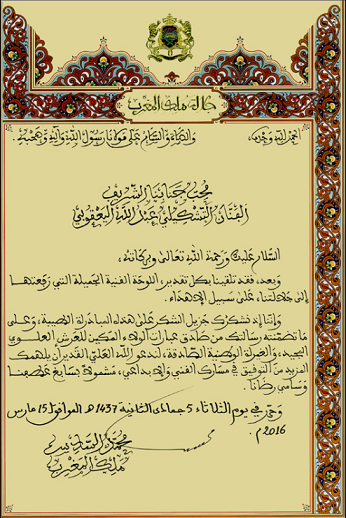 جلالة ملك المغرب
الحمد لله وحده، والصلاة والسلام على مولانا رسول الله وآله وصحبه.
محب جنابنا الشريف
الفنان التشكيلي عبد الله اليعقوبي
السلام عليك ورحمة الله تعالى وبركاته،
وبعد، فقد تلقينا بكل تقدير، اللوحة الفنية الجميلة التي رفعتها
إلى جلالتنا، على سبيل الإهداء.
وإننا إذ نشكرك جزيل الشكر على هذه المبادرة الطيبة، وعلى
ما تضمنته رسالتك من صادق عبارات الولاء المكين للعرش العلوي
المجيد، والغيرة الوطنية الصادقة، لندعو الله العلي القدير أن يلهمك
المزيد من التوفيق في مسارك الفني والإبداعي، مشمولا بسابغ عطفنا
وسامي رضانا.
وحرر في يوم الثلاثاء 5 جمادى الثانية 1437 هـ الموافق 15 مارس
2016 م.
محمد السادس
ملك المغرب